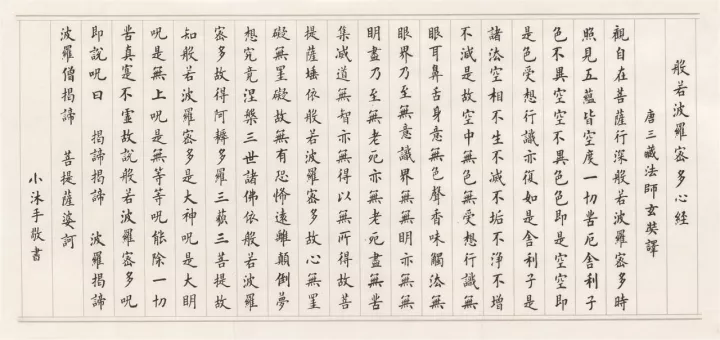 般若波羅密多心經
唐三藏法師玄奘譯
觀自在菩薩行深般若波羅密多時
照見五蘊皆空度一切苦厄舍利子
色不異空空不異色色即是空空即
是色受想行識亦復如是舍利子是
諸法空相不生不滅不垢不淨不增
不減是故空中無色無受想行識無
眼耳鼻舌身意無色聲香味觸法無
眼界乃至無意識界無無明亦無無
明盡乃至無老死亦無老死盡無苦
集滅道無智亦無得以無所得故菩
提薩埵依般若波羅密多故心無罣
礙無罣礙故無有恐怖遠離顛倒夢
想究竟涅槃三世諸佛依般若波羅
密多故得阿耨多羅三藐三菩提故
知般若波羅密多是大神呪是大明
呪是無上呪是無等等呪能除一切
苦真實不虛故說般若波羅密多呪
即說呪曰 揭諦揭諦 波羅揭諦
波羅僧揭諦 菩提薩婆訶
小沐手敬書